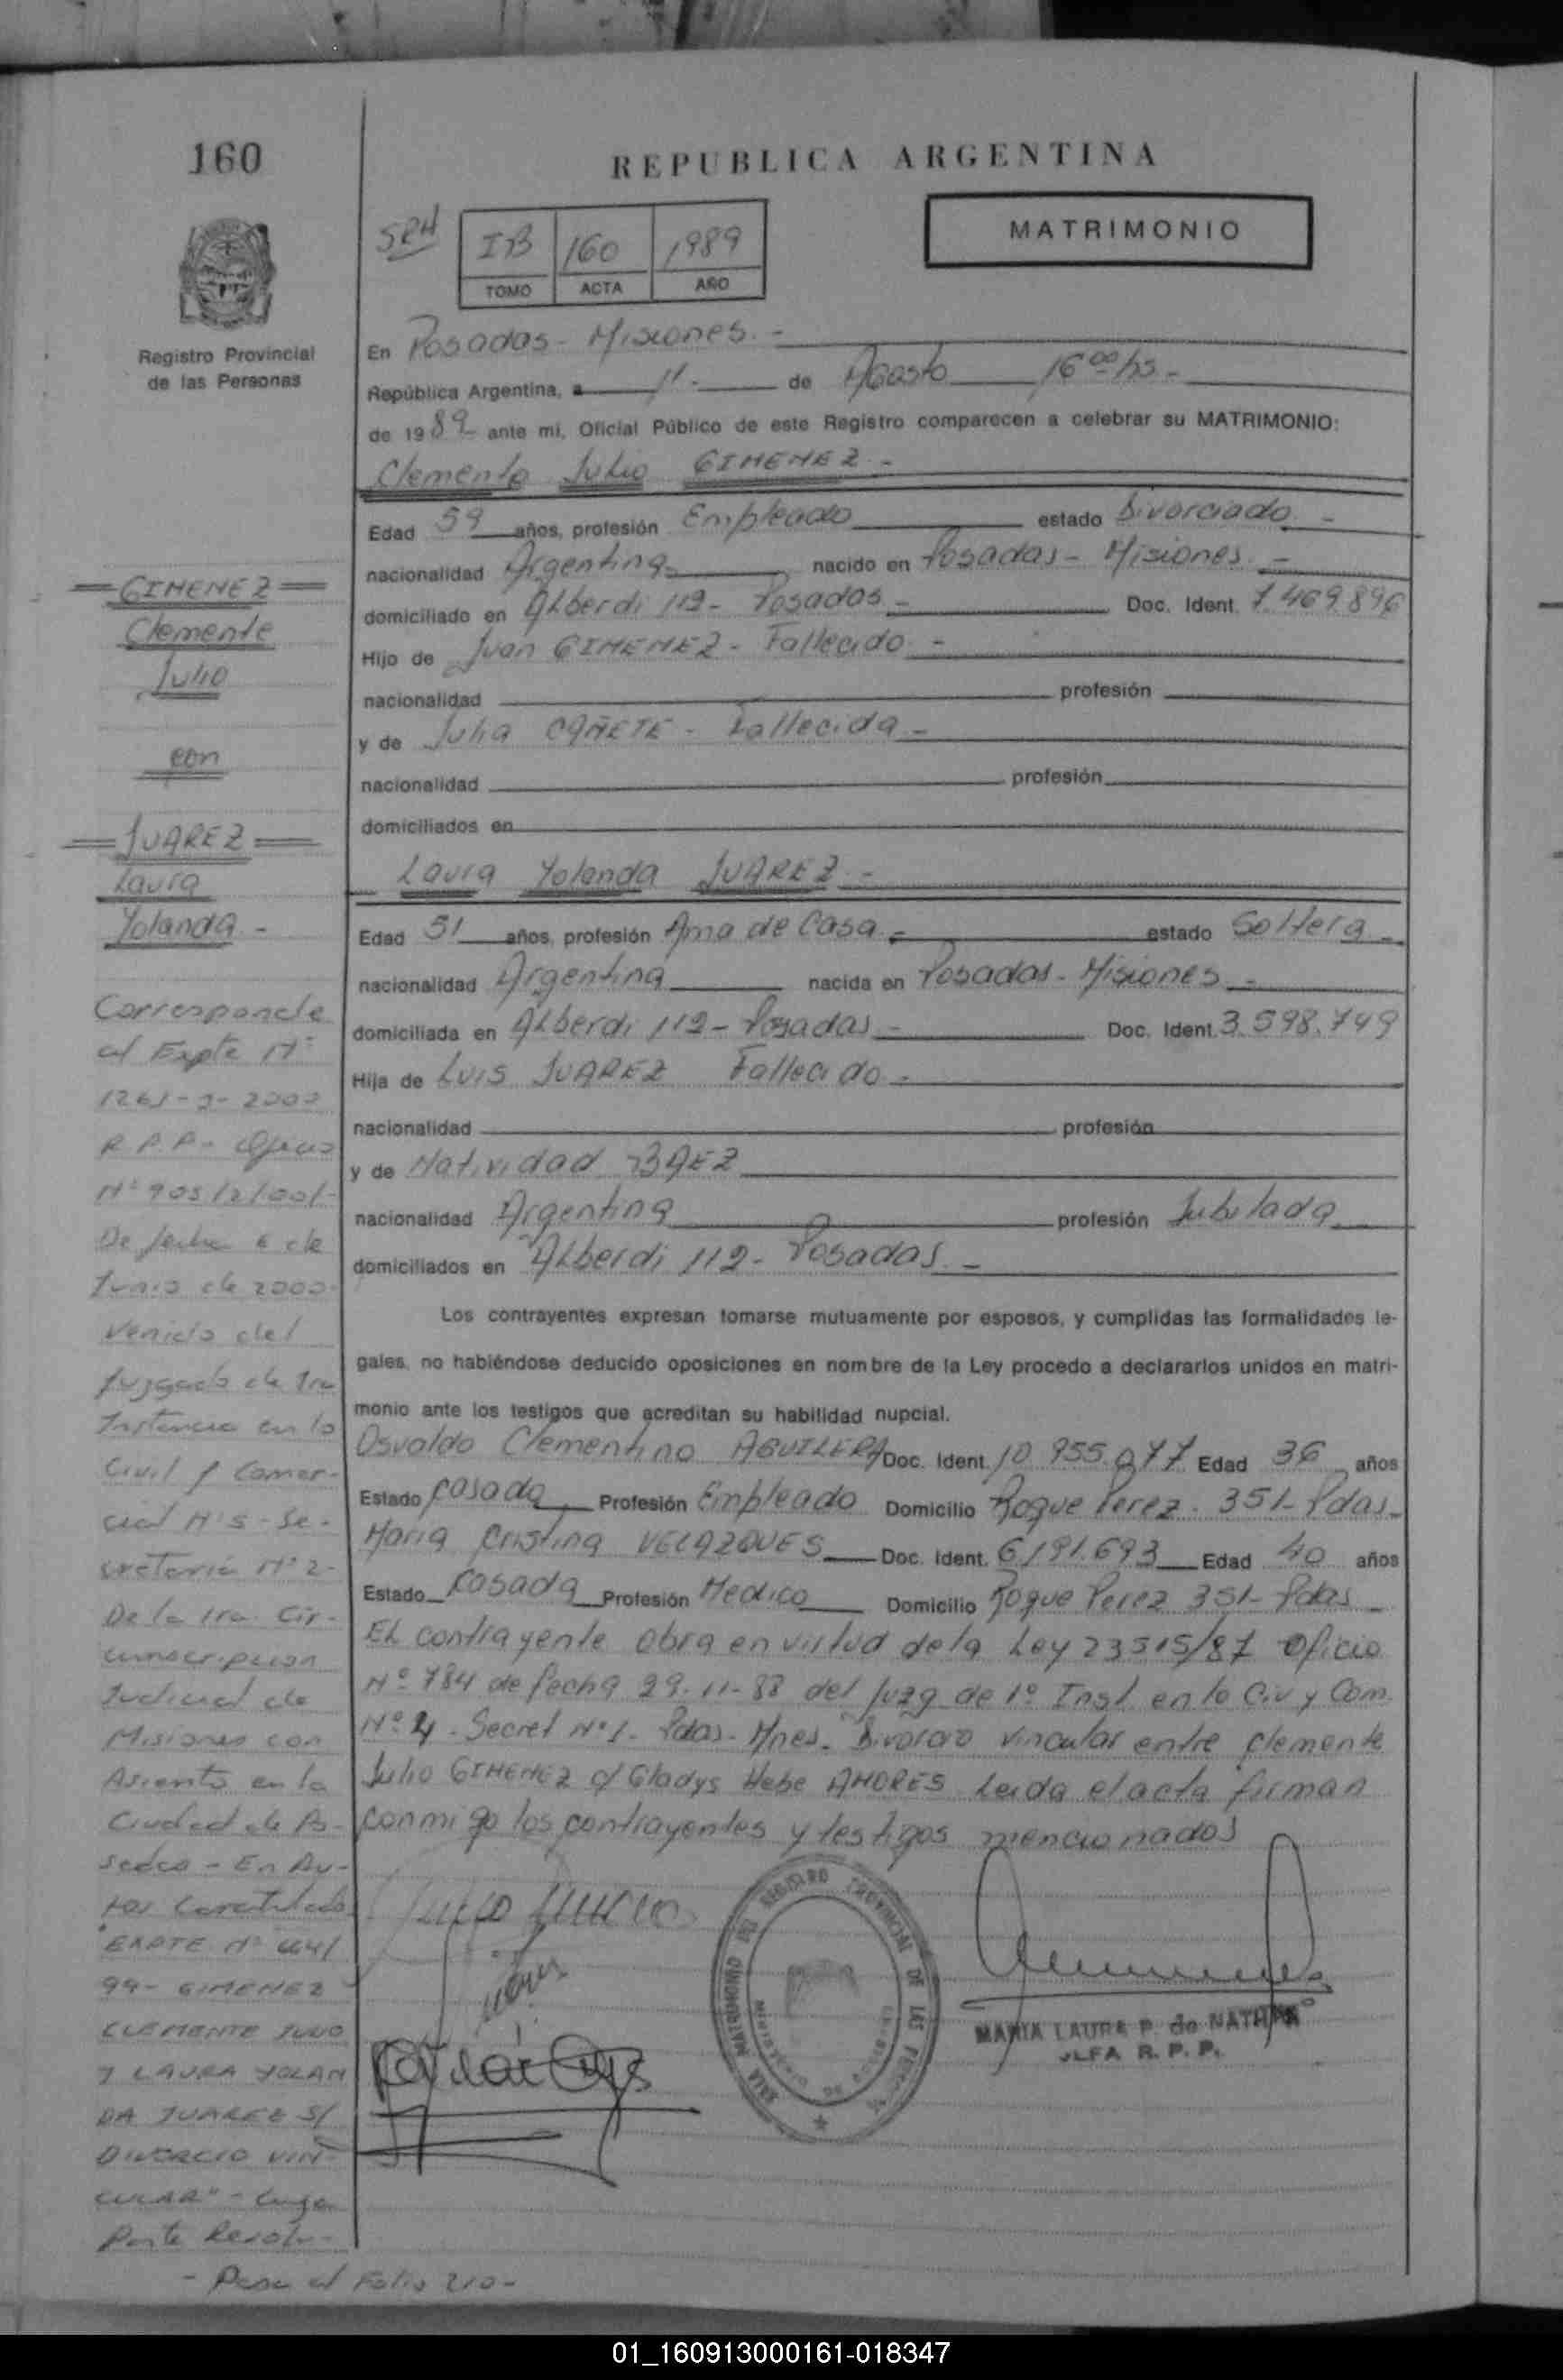 160
REPUBLICA ARGENTINA
MATRIMONIO
IB 160 1989
TOMO ACTA AÑO
Registro Provincial
de las Personas
En Posadas - Misiones. -
República Argentina, a 11. de Agosto 16 00 hs -
de 1989 ante mi, Oficial Público de este Registro comparecen a celebrar su MATRIMONIO:
Clemente Julio GIMENEZ -
Edad 59 años, profesión Empleado estado Divorciado -
nacionalidad Argentina nacido en Posadas - Misiones. -
domiciliado en Alberdi 112 - Posadas - Doc. Ident. 7.469.896
Hijo de Juan GIMENEZ - Fallecido. -
nacionalidad profesión
y de Julia CAÑETE - Fallecida -
nacionalidad profesión
domiciliados en
Laura Yolanda JUAREZ -
Edad 51 años, profesión Ama de Casa - estado Soltera -
nacionalidad Argentina nacida en Posadas - Misiones -
domiciliada en Alberdi 112 - Posadas - Doc. Ident. 3.598.749
Hija de Luis JUAREZ Fallecido -
nacionalidad profesión
y de Natividad BAEZ
nacionalidad Argentina profesión Jubilada
domiciliados en Alberdi 112 - Posadas. -
Los contrayentes expresan tomarse mutuamente por esposos, y cumplidas las formalidades le-
gales, no habiéndose deducido oposiciones en nombre de la Ley procedo a declararlos unidos en matri-
monio ante los testigos que acreditan su habilidad nupcial.
Osvaldo Clementino AGUILERA Doc. Ident. 10.955.077 Edad 36 años
Estado Casado Profesión Empleado Domicilio Roque Perez - 351 - Pdas -
Maria Cristina VELAZQUES Doc. Ident. 6191.693 Edad 40 años
Estado Casada Profesión Medico Domicilio Roque Perez 351 - Pdas -
El contrayente obra en virtud de la Ley 23515/87 Oficio
Nº 784 de fecha 29-11-88 del Juzg de 1º Inst. en lo Civ y Com.
Nº 4 - Secret Nº 1 - Pdas - Mnes - Divorcio vincular entre Clemente
Julio GIMENEZ c/ Gladys Hebe AMORES Leida el acta firman
conmigo los contrayentes y testigos mencionados
MARIA LAURA P. de
R. P. P.
GIMENEZ
Clemente
Julio
con
JUAREZ
Laura
Yolanda -
Corresponde
al Expte Nº
R.P.P. - Oficio
De fecha 6 de
Junio de 2000 -
Venido del
Juzgado de 1ra
Instancia en lo
Civil y Comer-
cial Nº 5 - Se-
cretaria Nº 2 -
De la 1ra. Cir-
cunscripcion
Judicial de
Misiones con
Asiento en la
Ciudad de Po-
sadas - En Au-
tos Caratulados
"EXPTE Nº
99 - GIMENEZ
CLEMENTE JULIO
Y LAURA YOLAN
DA JUAREZ S/
DIVORCIO VIN-
CULAR" - cuya
Parte Resolu-
- Pasa al Folio 210 -
01_160913000161-018347